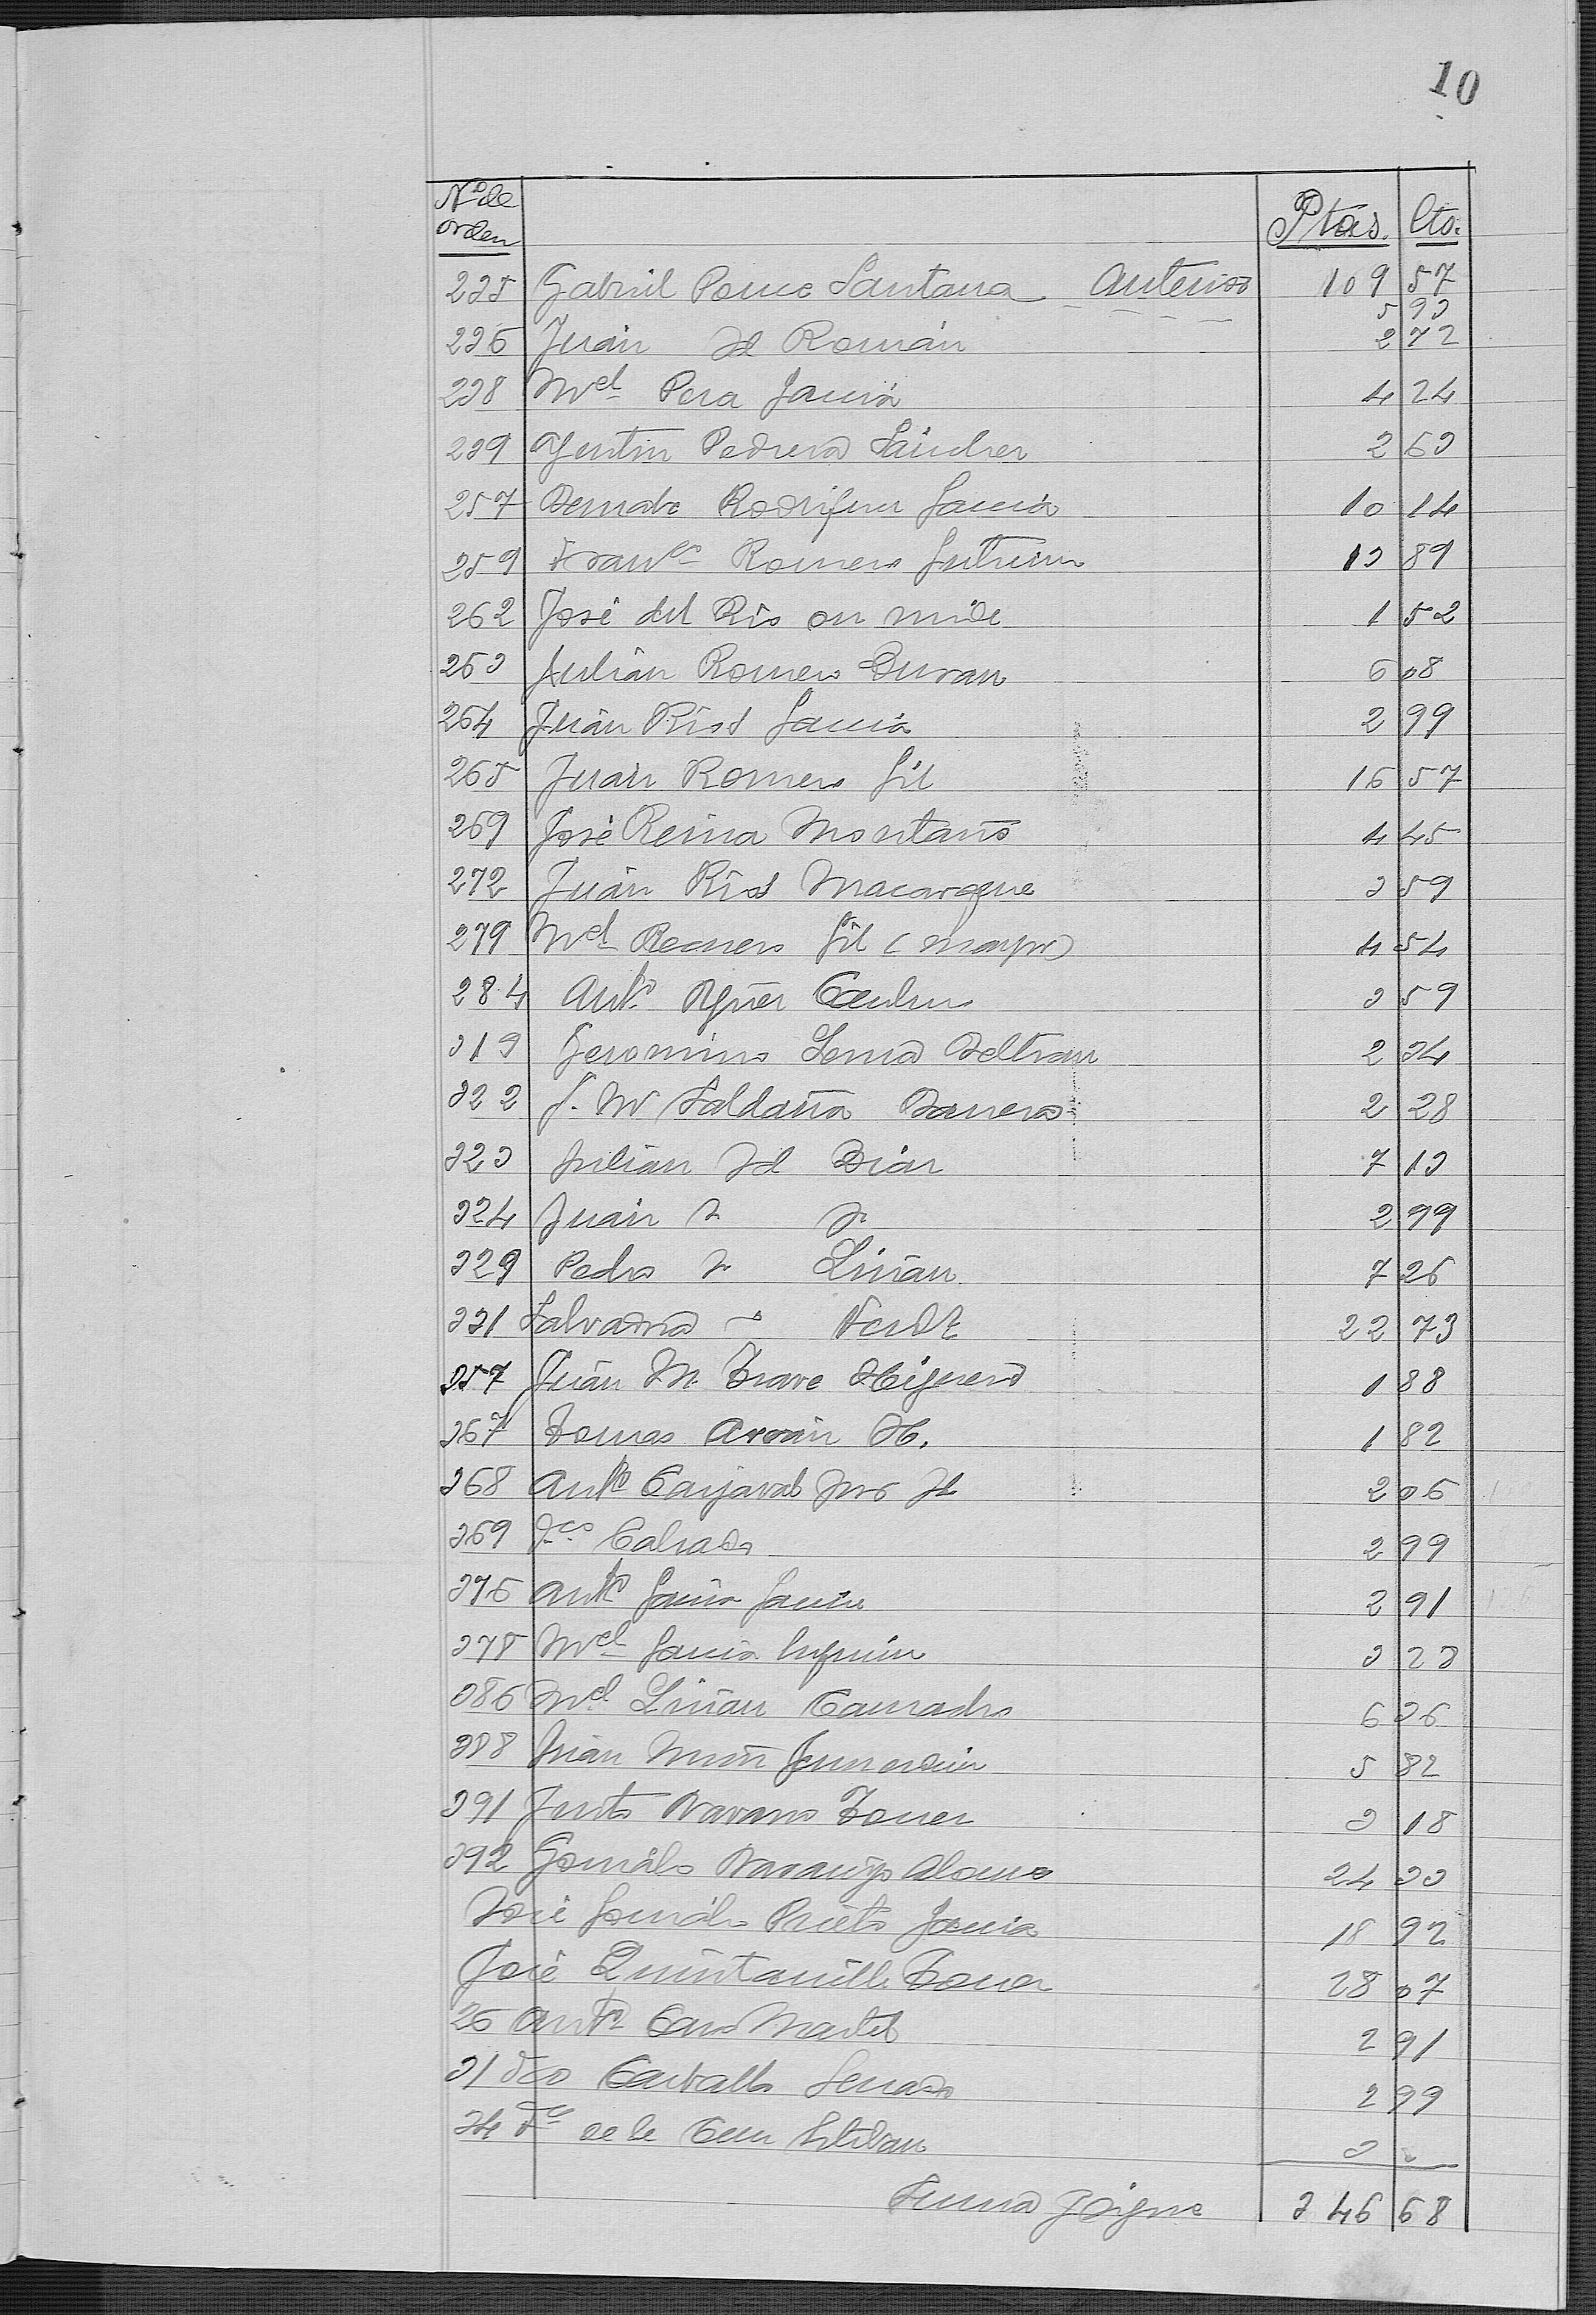 10
Nº de orden Ptas. Cts.
235 Gabriel Ponce Santana Anterior 109 57
5 93
236 Juan Id Román 2 72
238 Mel Pera García 4 24
239 Agustin Pedrera Sánchez 2 63
257 Bernabe Rodriguez García 10 14
259 Franco Romero Gutierrez 13 89
262 José del Rio 1 52
263 Julián Romero Duran 6 08
264 Juán Rios García 2 99
265 Juan Romero Gil 16 57
269 José Reina Montaño 4 45
272 Juán Rios Macarque 3 59
279 Mel Romero Gil (mayor) 4 54
284 Anto 3 59
319 Geronimo Serna Beltran 2 34
322 J. M Saldaña Barrera 2 28
323 Julian Id Diaz 7 13
324 Juan " " 2 99
329 Pedro " Liñan 7 26
331 Salvador " 22 73
357 Juán M. Trave Higuero 1 88
367 Tomas H. 1 82
368 Anto Carjaval 2 06
369 Fco Calzado 2 99
376 Anto García García 2 91
378 Mel García 3 28
386 Mel Liñan Camacho 6 26
388 Juan 5 82
391 Justo Navarro Torres 3 18
392 Gonzálo Naranjo Alonso 24 33
José González Prieto García 18 92
José Quintanilla Tovar 28 07
26 Anto Caro Martel 2 91
31 Fco Carballo 2 99
34 Fco de la 3 "
Suma y sigue 346 68